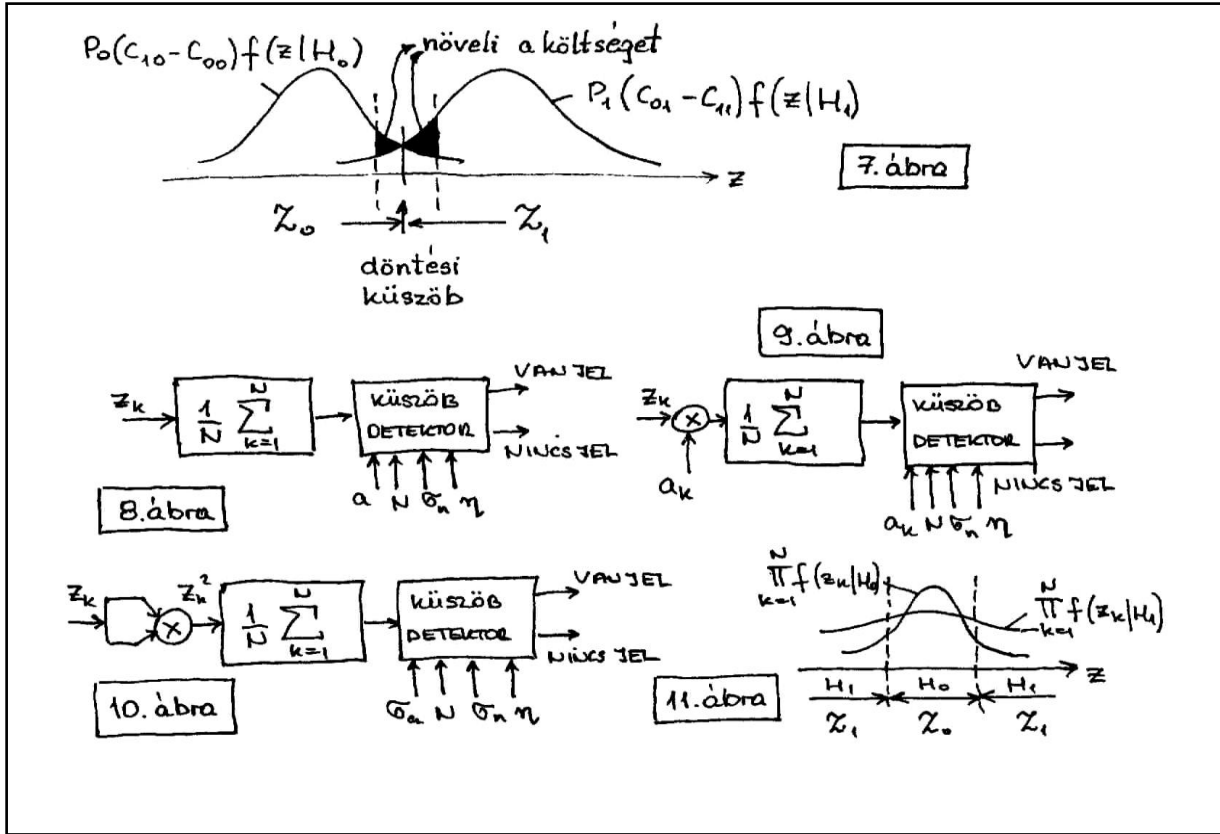 P₀(C₁₀-C₀₀)f(z|H₀)
növeli a költséget
P₁(C₀₁-C₁₁)f(z|H₁)
7. ábra
z
Z₀
Z₁
döntési
küszöb
9. ábra
z_k
1/N ∑_{k=1}^{N}
KÜSZÖB
DETEKTOR
VAN JEL
NINCS JEL
a N σ_n η
8. ábra
z_k
×
a_k
1/N ∑_{k=1}^{N}
KÜSZÖB
DETEKTOR
VAN JEL
NINCS JEL
a_k N σ_n η
z_k
×
z_k²
1/N ∑_{k=1}^{N}
KÜSZÖB
DETEKTOR
VAN JEL
NINCS JEL
σ_a N σ_n η
10. ábra
∏_{k=1}^{N} f(z_k|H₀)
∏_{k=1}^{N} f(z_k|H₁)
z
H₁ H₀ H₁
Z₁ Z₀ Z₁
11. ábra